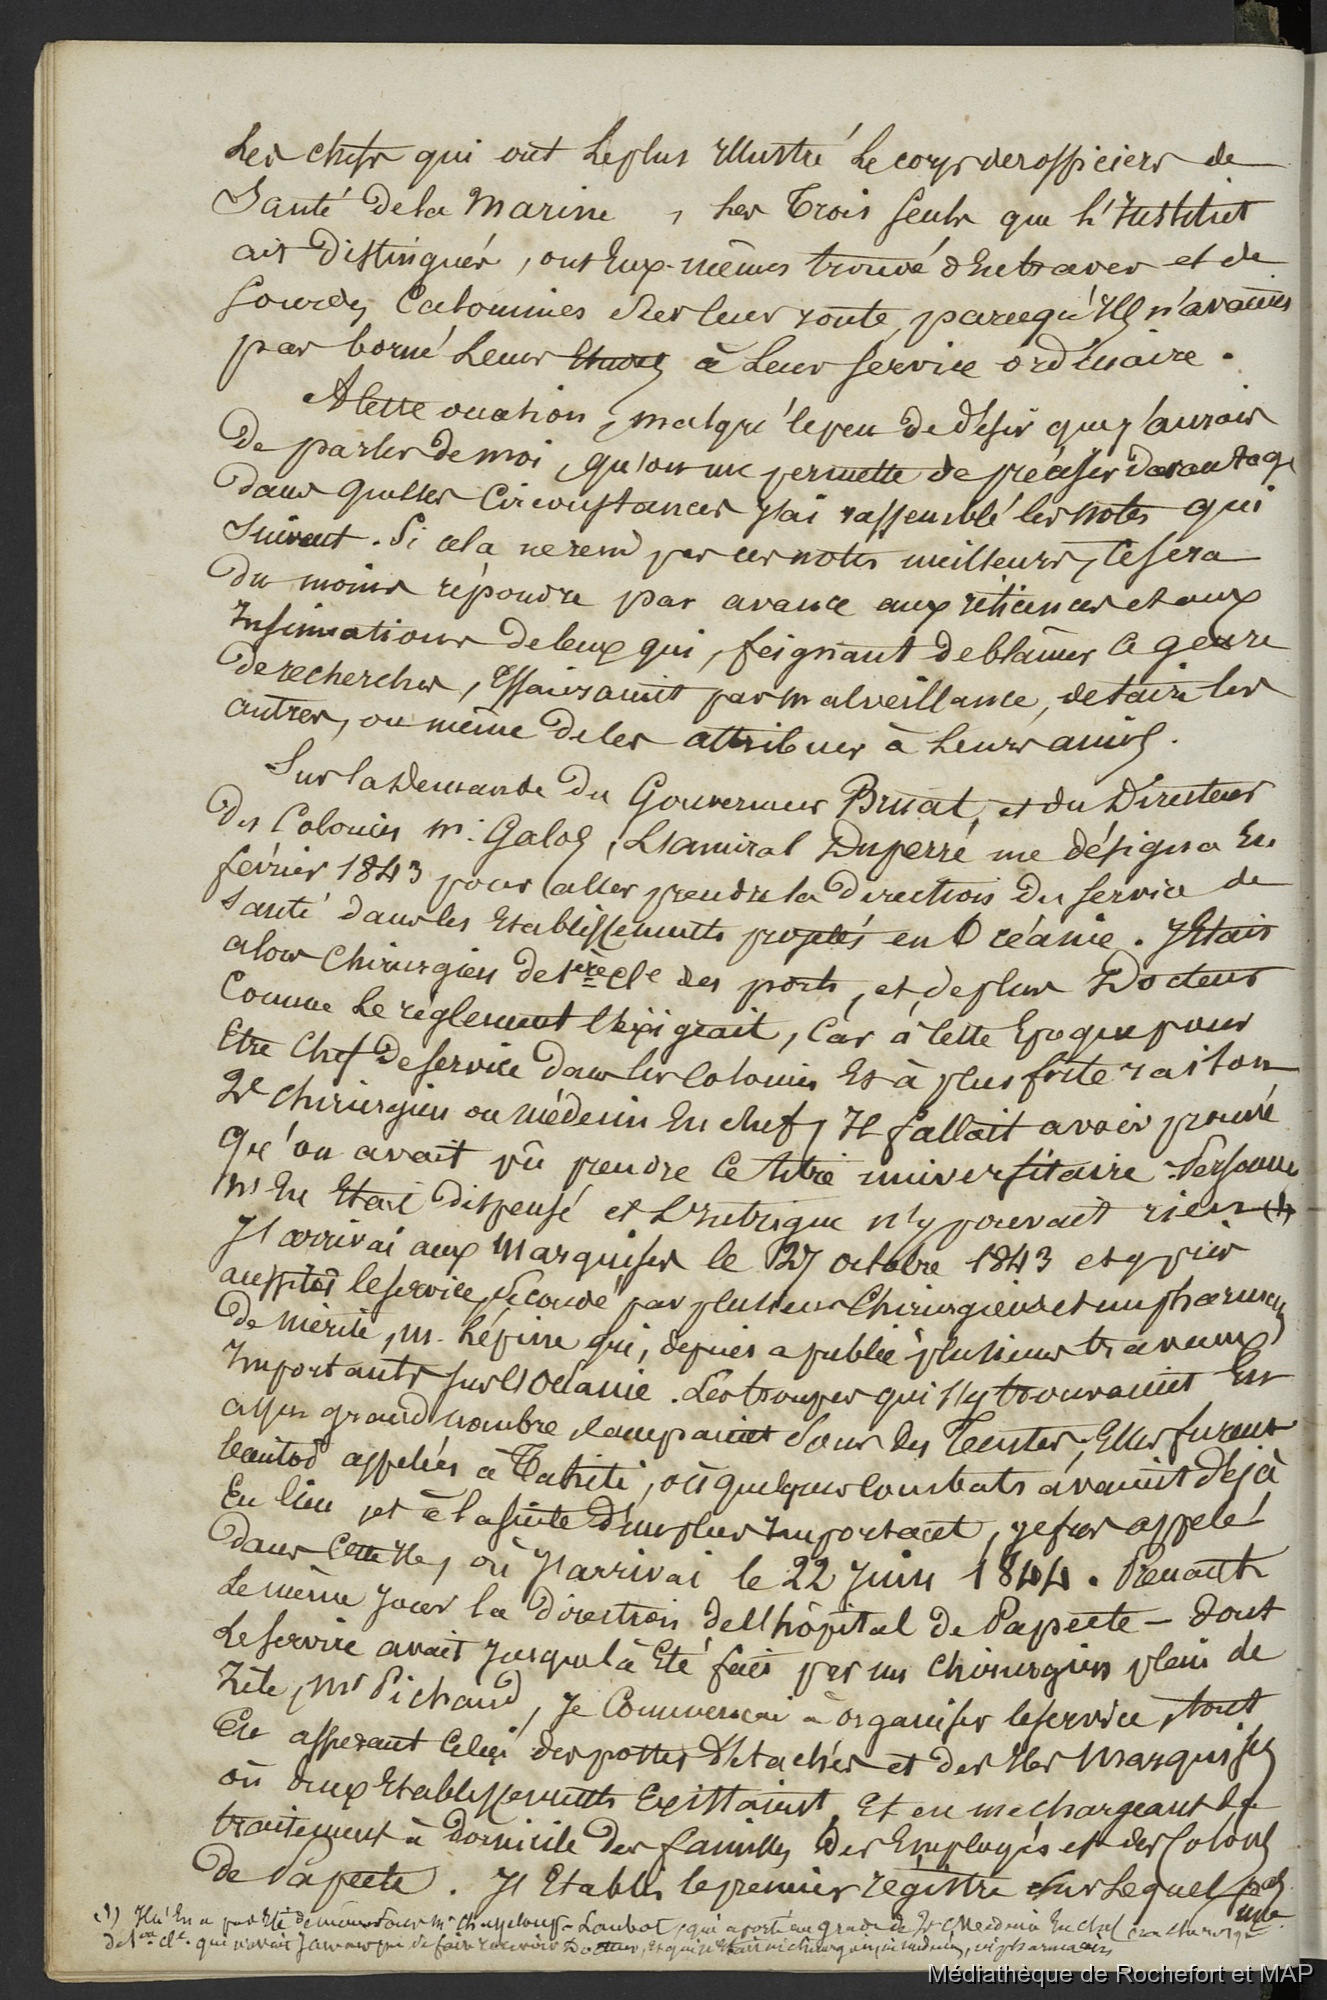 Les chefs qui ont le plus illustré le corps des officiers de
Santé de la Marine, les trois seuls que l'Institut
ait distingués, ont eux-mêmes trouvé d'entraves et de
sourdes calomnies sur leur route, parcequ'ils n'avaient
pas borné leurs études à leur service ordinaire.
A cette occasion, malgré le peu de désir que j'aurais
de parler de moi, qu'on me permette de préciser davantage
dans quelles circonstances j'ai rassemblé les notes qui
suivent. Si cela ne rend pas ces notes meilleures, ce sera
du moins répondre par avance aux réticences et aux
insinuations de ceux qui, feignant de blâmer ce genre
de recherches, essaieraient par malveillance, de taire les
autres, ou même de les attribuer à leurs amis.
Sur la demande du Gouverneur Bruat, et du Directeur
des Colonies Mr. Galos, l'amiral Duperré me désigna en
février 1843 pour aller prendre la direction du service de
santé dans les Etablissements projetés en Océanie. J'étais
alors chirurgien de 1ère cle des ports, et de plus Docteur
comme le réglement l'exigeait, car à cette époque pour
être chef de service dans les colonies et à plus forte raison
2e chirurgien ou médecin en chef, il fallait avoir prouvé
qu'on avait pû prendre ce titre universitaire. Personne
n'en était dispensé et l'intrigue n'y pouvait rien (1)
J'arrivai aux Marquises le 27 octobre 1843 et y pris
aussitôt le service, secondé par plusieurs chirurgiens et un pharmacien
de mérite, M. Lépine qui, depuis a publié plusieurs travaux
importants sur l'Océanie. Les troupes qui s'y trouvaient en
assez grand nombre campaient sous des Tentes; Elles furent
bientôt appelées à Tahiti, où quelques combats avaient déjà
eu lieu et à la suite d'un plus important, je fus appelé
dans cette Ile, où j'arrivai le 22 juin 1844. Prenant
le même jour la direction de l'hôpital de Papeete – dont
le service avait jusque là été fait par un chirurgien plein de
zèle, Mr Pichaud, je commençai à organiser le service, tout
en assurant celui des postes détachés et des Iles Marquises
où deux Etablissements existaient, Et en me chargeant du
traitement à domicile des familles des Employés et des colons
de Papeete. J'établis le premier régistre sur lequel
(1) Il n'en a pas été de même sous Mr Chasseloup-Laubat, qui a porté au grade de 2e médecin en chef un chirurgien
de 1ère cle. qui n'avait jamais pu se faire recevoir Docteur, et qui n'était ni chirurgien, ni médecin, ni pharmacien
Médiathèque de Rochefort et MAP